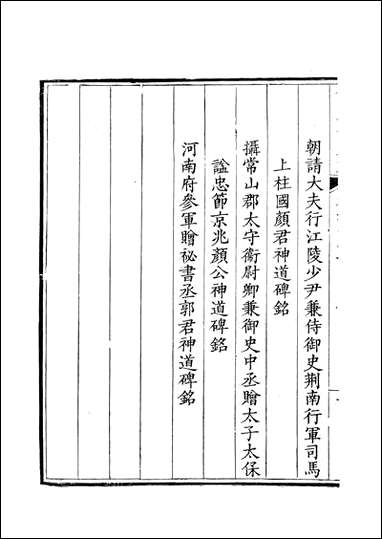 朝請大夫行江陵少尹兼侍御史荆南行軍司馬
上柱國顏君神道碑銘
攝常山郡太守衞尉卿兼御史中丞贈太子太保
諡忠節京兆顏公神道碑銘
河南府參軍贈祕書丞郭君神道碑銘